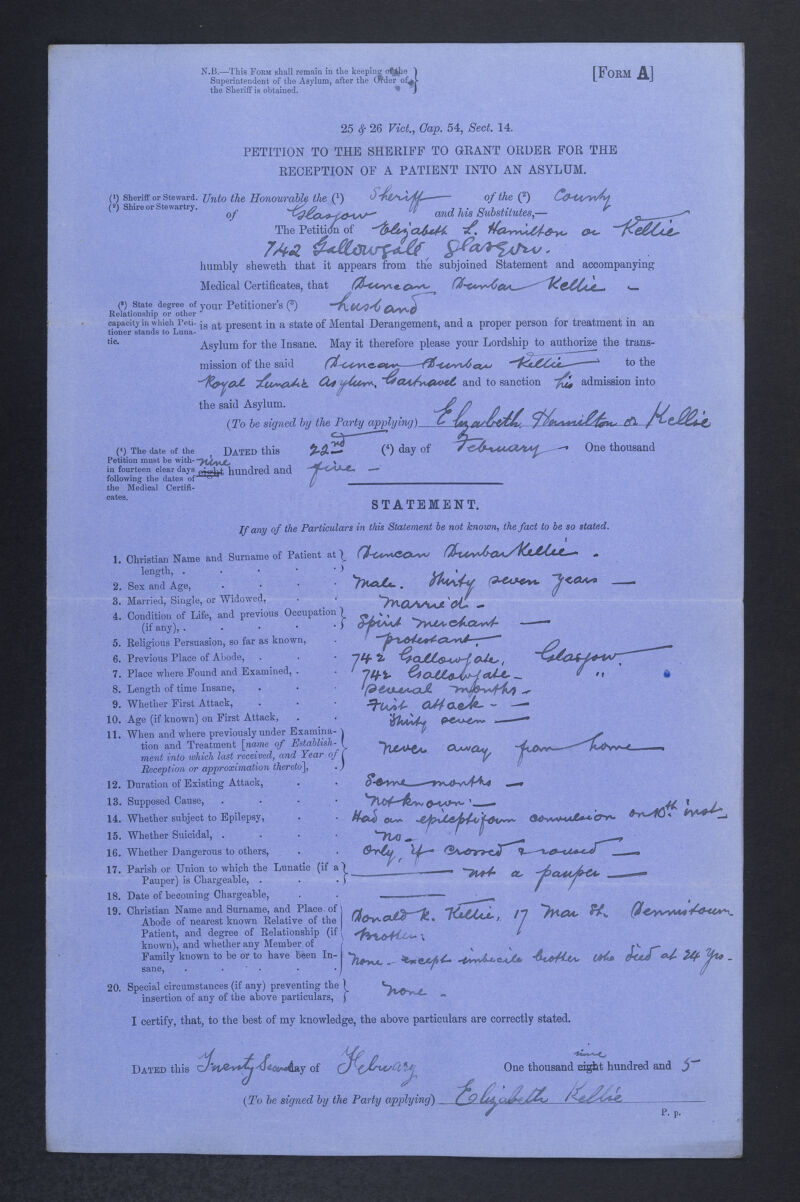 N.B.—This Form shall remain in the keeping of the
Superintendent of the Asylum, after the Order of
the Sheriff is obtained.
[Form A]
25 & 26 Vict., Cap. 54, Sect. 14.
PETITION TO THE SHERIFF TO GRANT ORDER FOR THE
RECEPTION OF A PATIENT INTO AN ASYLUM.
(1) Sheriff or Steward.
(2) Shire or Stewartry.
Unto the Honourable the (1) Sheriff of the (2) County
of Glasgow and his Substitutes,—
The Petition of Elizabeth L. Hamilton or Kellie
742 Gallowgate, Glasgow.
humbly sheweth that it appears from the subjoined Statement and accompanying
Medical Certificates, that Duncan Dunbar Kellie –
(3) State degree of
Relationship or other
capacity in which Peti-
tioner stands to Luna-
tic.
your Petitioner's (3) husband
is at present in a state of Mental Derangement, and a proper person for treatment in an
Asylum for the Insane. May it therefore please your Lordship to authorize the trans-
mission of the said Duncan Dunbar Kellie to the
Royal Lunatic Asylum, Gartnavel and to sanction his admission into
the said Asylum.
(To be signed by the Party applying) Elizabeth Hamilton or Kellie
(4) The date of the
Petition must be with-
in fourteen clear days
following the dates of
the Medical Certifi-
cates.
Dated this 22nd (4) day of February. One thousand
nine
eight hundred and five –
STATEMENT.
If any of the Particulars in this Statement be not known, the fact to be so stated.
1. Christian Name and Surname of Patient at
length, . . . . . Duncan Dunbar Kellie .
2. Sex and Age, . . . . Male. Thirty seven years —
3. Married, Single, or Widowed, . . Married –
4. Condition of Life, and previous Occupation
(if any), . . . . . Spirit merchant —
5. Religious Persuasion, so far as known, . protestant.
6. Previous Place of Abode, . . . 742 Gallowgate, Glasgow.
7. Place where Found and Examined, . . 742 Gallowgate – "
8. Length of time Insane, . . . Several months –
9. Whether First Attack, . . . First attack – –
10. Age (if known) on First Attack, . . Thirty seven —
11. When and where previously under Examina-
tion and Treatment [name of Establish-
ment into which last received, and Year of
Reception or approximation thereto], . never away from home
12. Duration of Existing Attack, . . Some months –
13. Supposed Cause, . . . . Not known. —
14. Whether subject to Epilepsy, . . Had an epileptiform convulsion on 10th inst.
15. Whether Suicidal, . . . . No –
16. Whether Dangerous to others, . . Only, if crossed & roused —
17. Parish or Union to which the Lunatic (if a
Pauper) is Chargeable, . . . — not a pauper —
18. Date of becoming Chargeable, . . —
19. Christian Name and Surname, and Place of
Abode of nearest known Relative of the
Patient, and degree of Relationship (if
known), and whether any Member of
Family known to be or to have been In-
sane, . . . . . .
Donald R. Kellie, 17 Mar St. Dennistoun
Brother;
None – except imbecile brother who died at 24 yrs –
20. Special circumstances (if any) preventing the
insertion of any of the above particulars, None –
I certify, that, to the best of my knowledge, the above particulars are correctly stated.
Dated this Twenty Second day of February One thousand nine eight hundred and 5
(To be signed by the Party applying) Elizabeth Kellie
P. p.